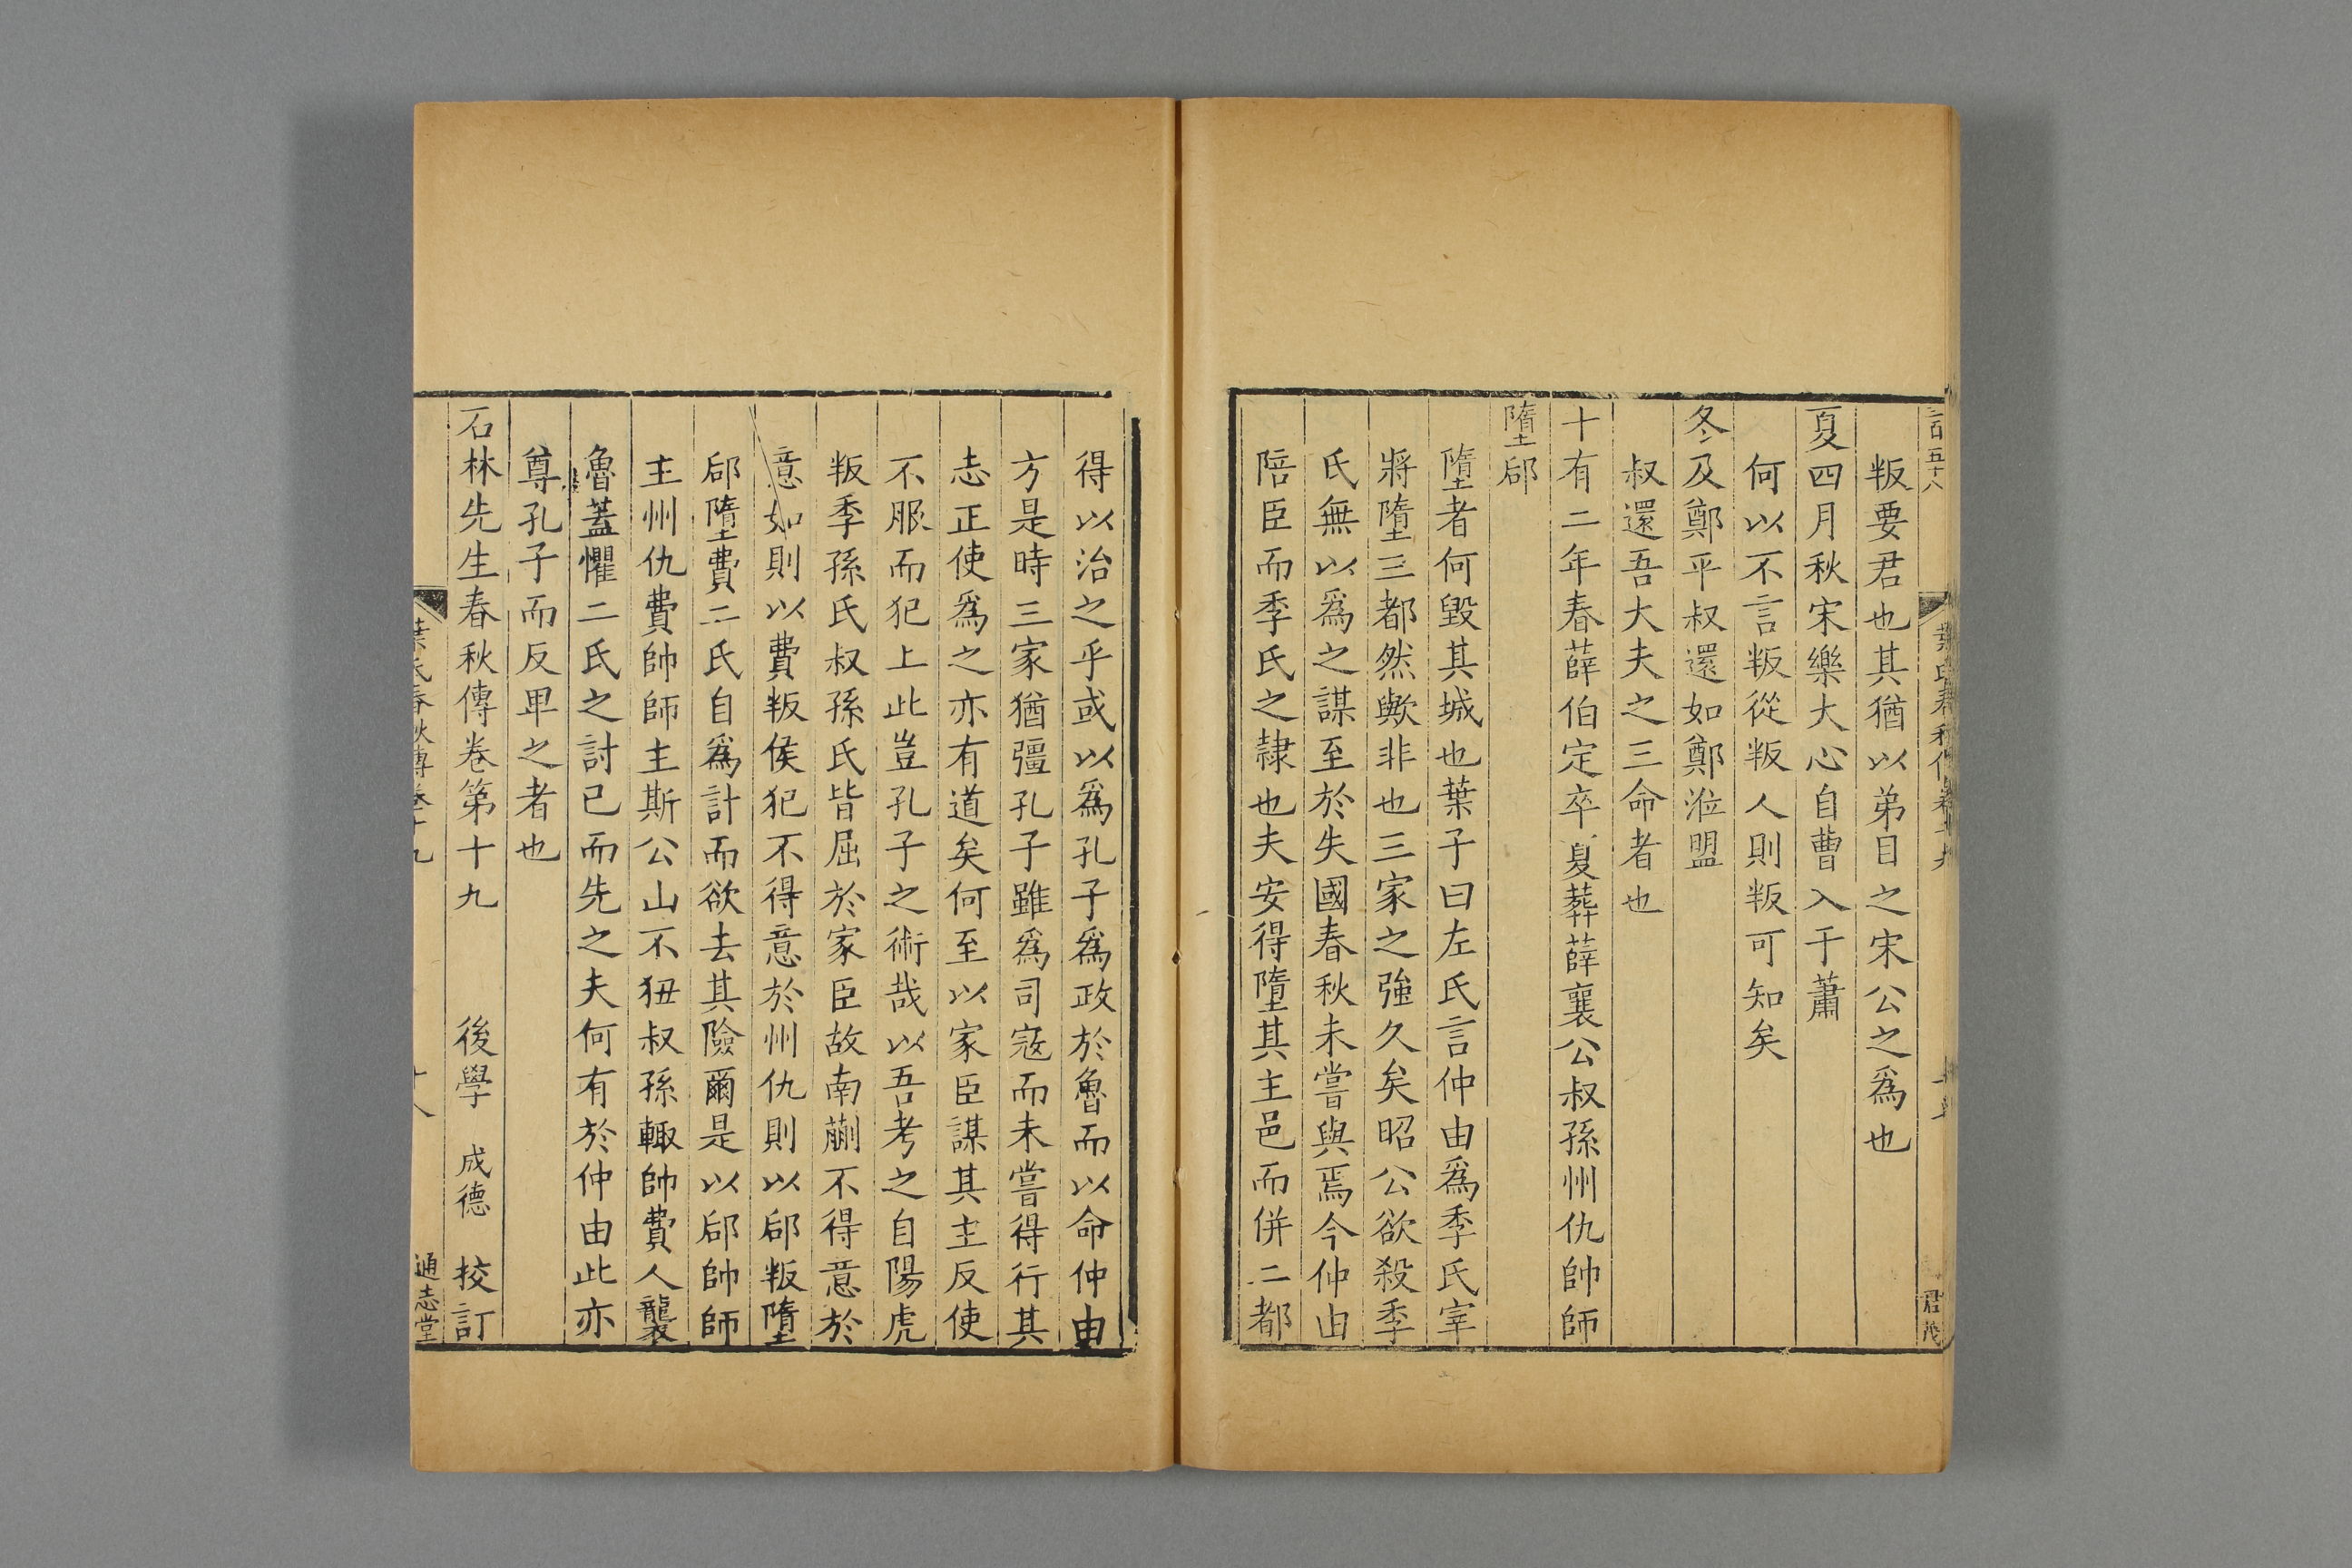 叛要君也其猶以弟目之宋公之爲也
夏四月秋宋樂大心自曹入于蕭
何以不言叛從叛人則叛可知矣
冬及鄭平叔還如鄭涖盟
叔還吾大夫之三命者也
十有二年春薛伯定卒夏葬薛襄公叔孫州仇帥師
墮郈
墮者何毀其城也葉子曰左氏言仲由爲季氏宰
將墮三都然歟非也三家之強久矣昭公欲殺季
氏無以爲之謀至於失國春秋未嘗與焉今仲由
陪臣而季氏之隷也夫安得墮其主邑而併二都
得以治之乎或以爲孔子爲政於魯而以命仲由
方是時三家猶彊孔子雖爲司寇而未嘗得行其
志正使爲之亦有道矣何至以家臣謀其主反使
不服而犯上此豈孔子之術哉以吾考之自陽虎
叛季孫氏叔孫氏皆屈於家臣故南蒯不得意於
意如則以費叛侯犯不得意於州仇則以郈叛墮
郈墮費二氏自爲計而欲去其險爾是以郈帥師
主州仇費帥師主斯公山不狃叔孫輙帥費人襲
魯蓋懼二氏之討已而先之夫何有於仲由此亦
尊孔子而反卑之者也
石林先生春秋傳卷第十九 後學 成德 挍訂
葉氏春秋傳卷十九 十八 通志堂